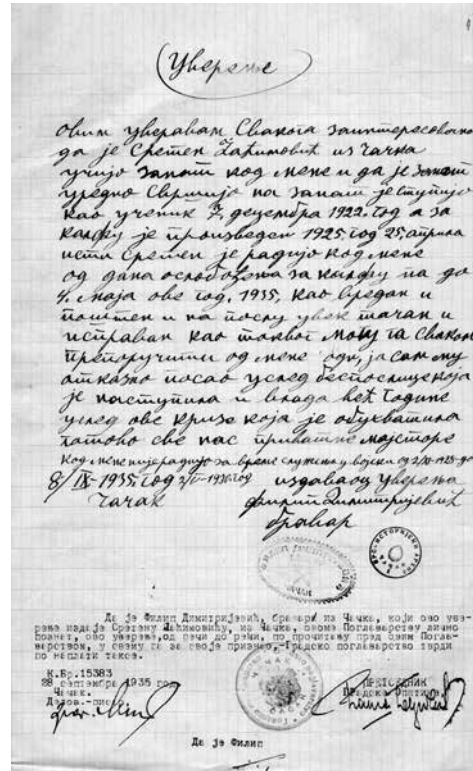 Уверење
Овим уверавам Свакога заинтересовано
да је Сретен Лаћимовић из Чачка
учијо занат код мене и да је занат
уредно Свршијо на занат је ступијо
као ученик 7, децембра 1922. год а за
калфу је произведен 1925. год 25, априла
исти Сретен је радијо код мене
од дана ослобођења за калфу па до
4. маја ове год. 1935, као вредан и
поштен и на послу увек тачан и
исправан као таквог могу га сваком
препоручити од мене ја сам му
отказао посао услед беспослице која
је наступила и влада већ године
услед ове кризе која је обухватила
готово све нас приватне мајсторе
код мене није радијо за време служења у војсци од
8/IX-1935. год издаваоц уверења
Чачак Филип Димитријевић
бравар
Да је Филип Димитријевић, бравар из Чачка, који ово уве-
рење издаје Сретену Лаћимовићу, из Чачка, овоме Поглаварству лично
познат, ово уверење, од речи до речи, по прочитању пред овим Погла-
варством, у свему га за своје признао, Градско поглаварство тврди
по наплати таксе.
К.Бр.15383
28 септембра 1935 год
Чачак.
ПРЕТСЕДНИК
Да је Филип